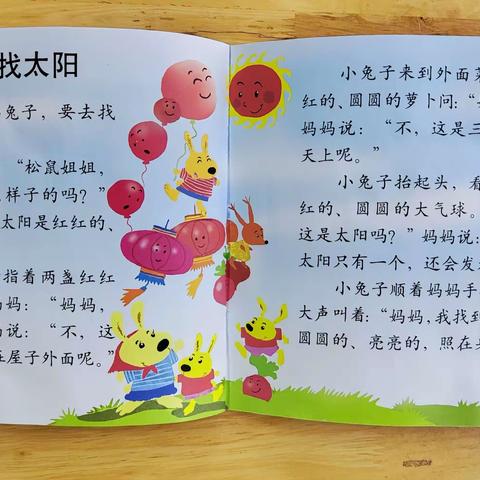 找太阳
兔子，要去找
“松鼠姐姐，
样子的吗？”
太阳是红红的、
指着两盏红红
妈：“妈妈，
说：“不，这
屋子外面呢。”
小兔子来到外面
红的、圆圆的萝卜问：“
妈妈说：“不，这是三
天上呢。”
小兔子抬起头，看
红的、圆圆的大气球。
这是太阳吗？”妈妈说：
太阳只有一个，还会发
小兔子顺着妈妈手
大声叫着：“妈妈，我找到
圆圆的、亮亮的，照在